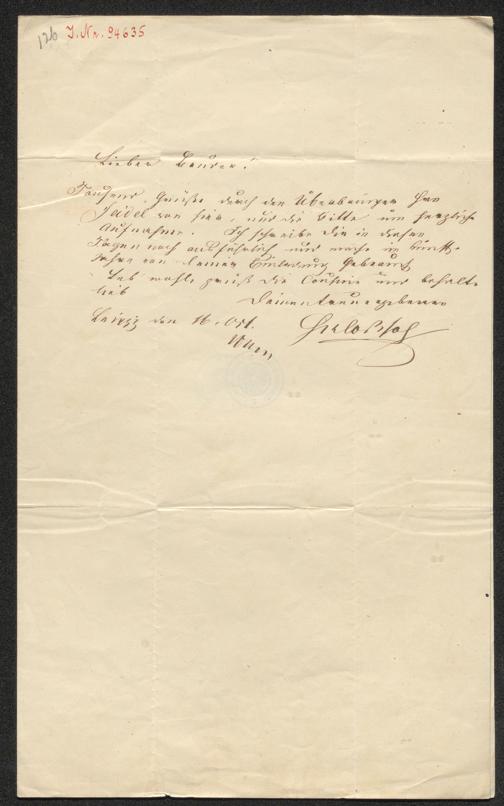 126 J. Nr. 94635
Lieber Bruder!
Tausend Grüße durch den Überbringer Hrn
Jadel von hier, und die Bitte um herzliche
Aufnahme. Ich schreibe Dir in diesen
Tagen noch ausführlich und mache im künft.
Jahre von Deiner Einladung Gebrauch
Leb wohl, grüß die Cousine und behalte
lieb
Deinen treuergebenen
Leipzig den 16. Okt.